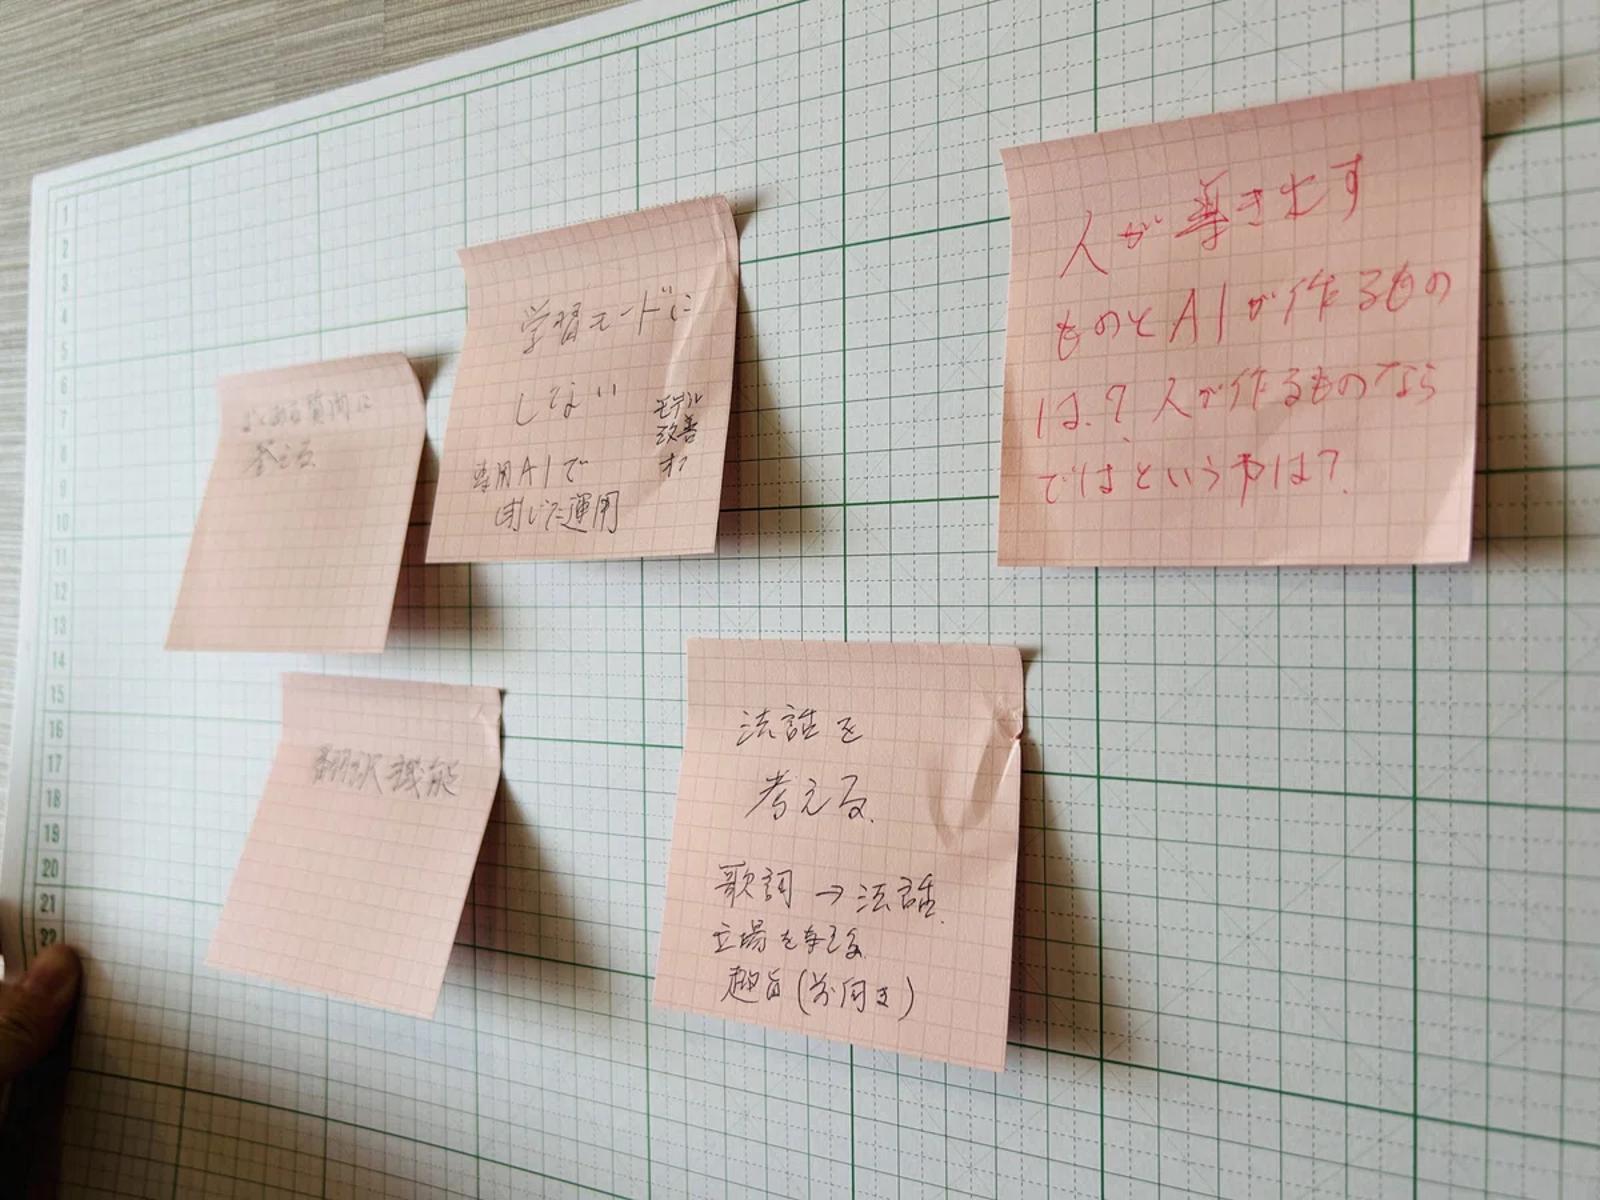 よくある質問に
答える
学習モードに
しない
モデル
改善
オフ
専用AIで
閉じた運用
人が導き出す
ものとAIが作るもの
は?人が作るものなら
ではというやは?
翻訳機能
法話を
考える。
歌詞→法話
立場を考える
趣旨(前向き)
1
2
3
4
5
6
7
8
9
10
11
12
13
14
15
16
17
18
19
20
21
22